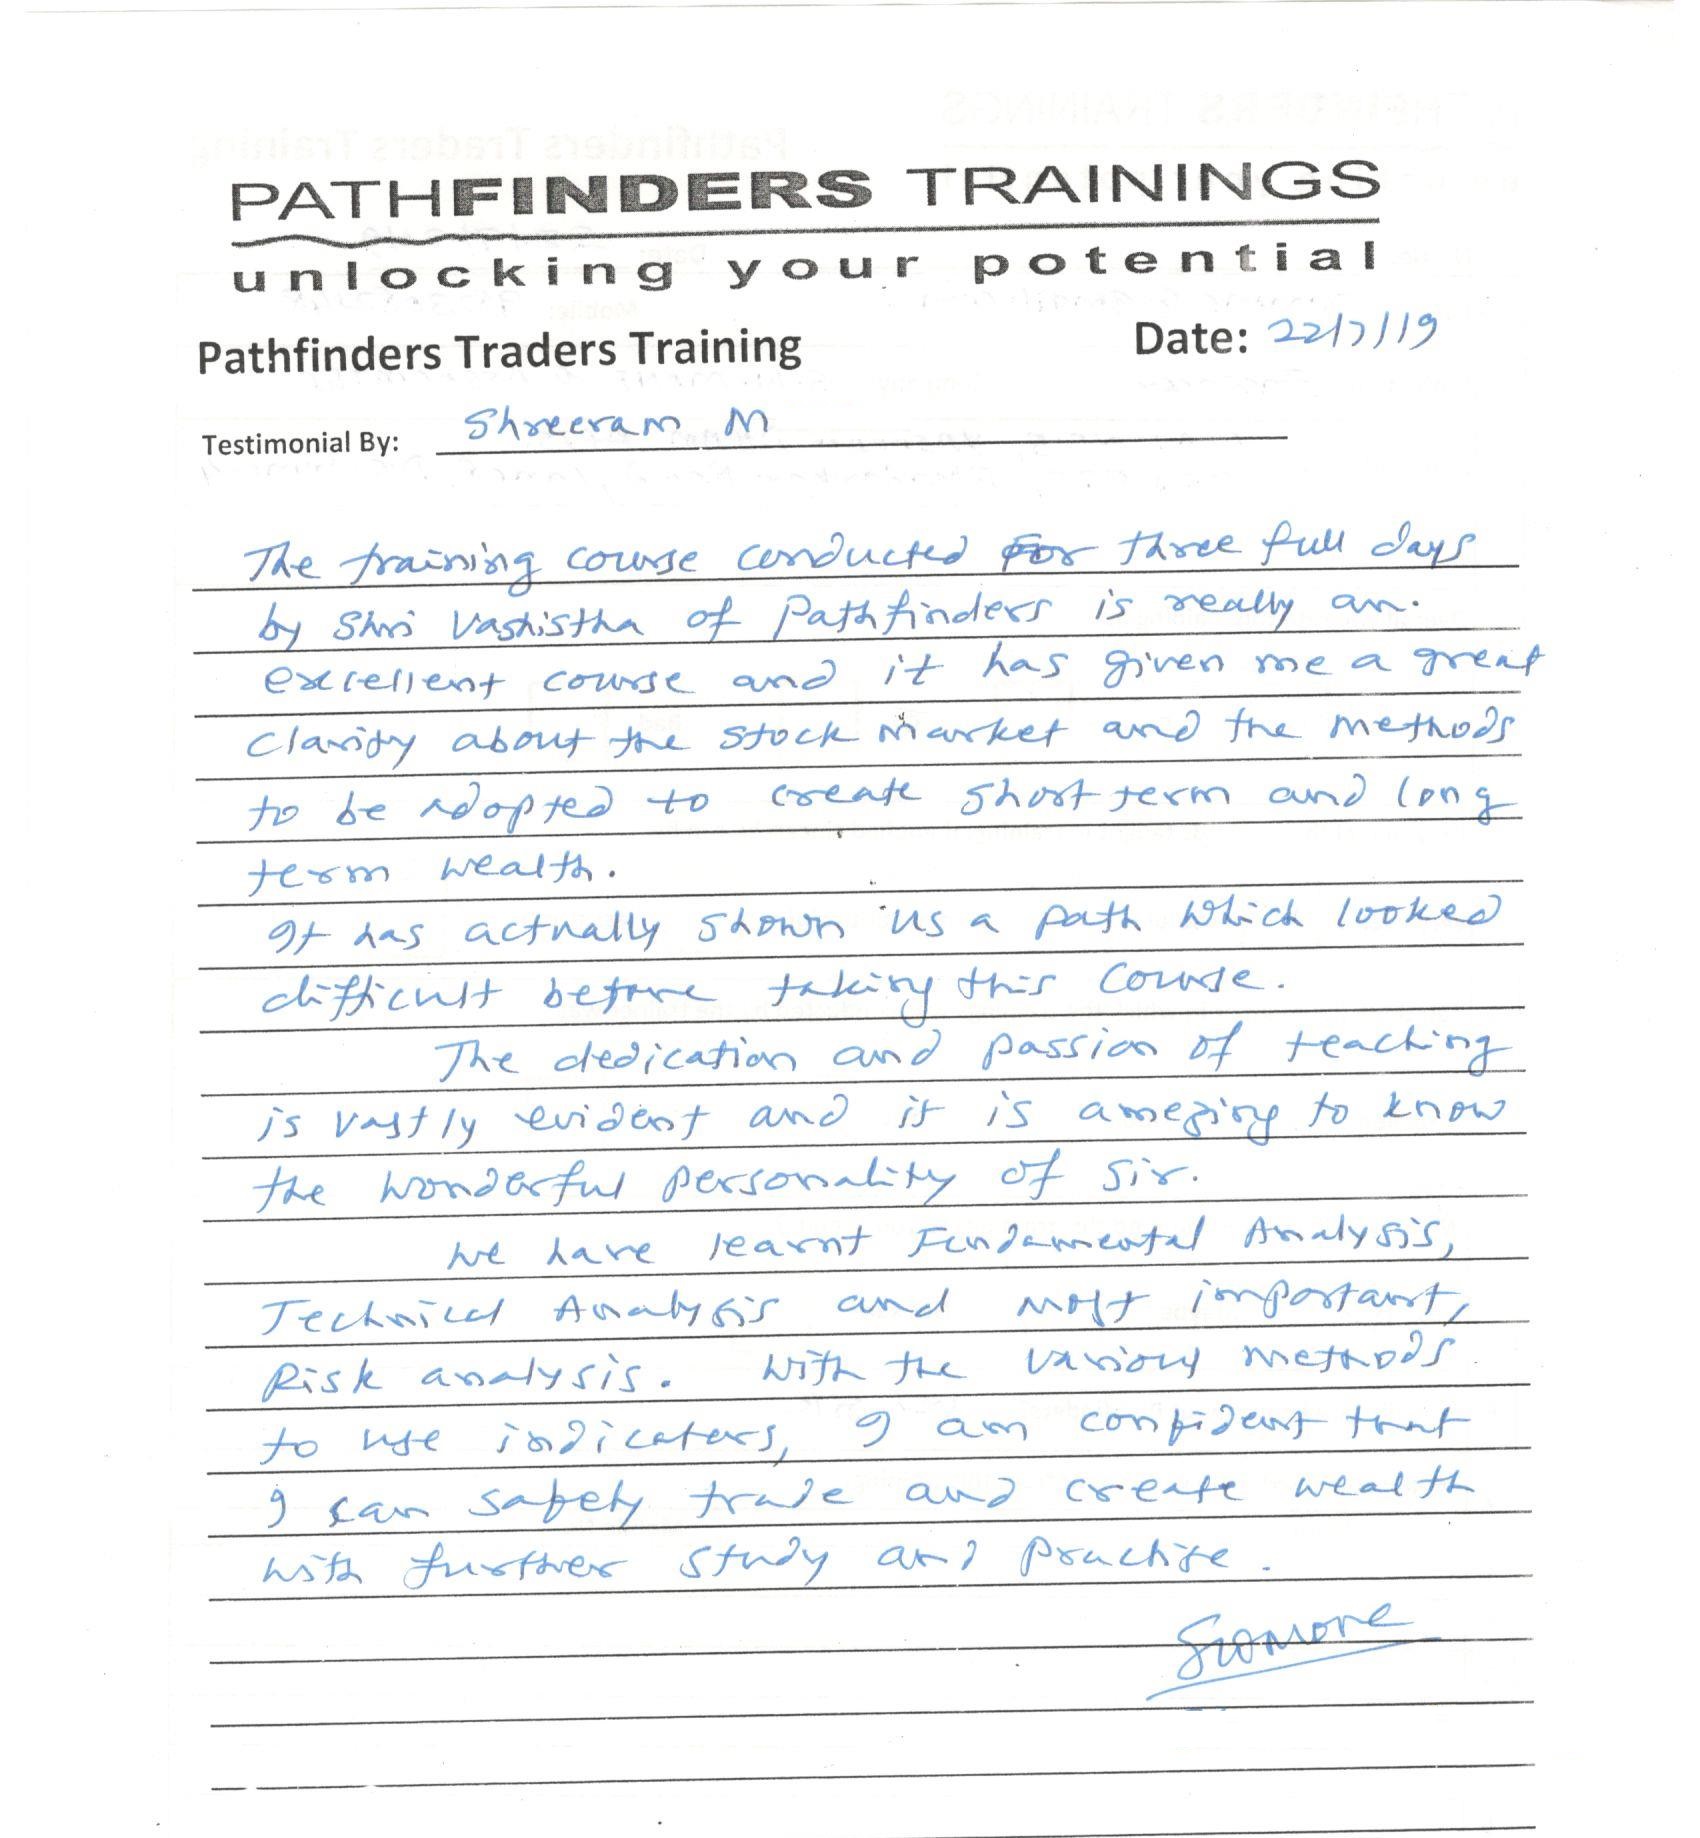 PATHFINDERS TRAININGS
unlocking your potential
Pathfinders Traders Training Date: 22/7/19
Testimonial By: Shreeram M
The training course conducted for three full days
by Shri Vashistha of Pathfinders is really an.
excellent course and it has given me a great
clarity about the stock market and the methods
to be adopted to create short term and long
term wealth.
It has actually shown us a path which looked
difficult before taking this course.
The dedication and passion of teaching
is vastly evident and it is amezing to know
the wonderful personality of sir.
We have learnt Fundamental Analysis,
Technical Analysis and most important,
Risk analysis. With the various methods
to use indicators, I am confident that
I can safely trade and create wealth
with further study and practise.